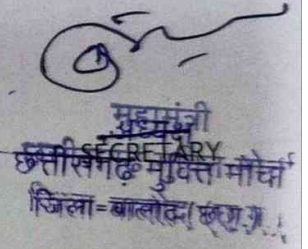 महामंत्री
अध्यक्ष
SECRETARY
छत्तीसगढ़ मुक्ति मोर्चा
जिला = बालोद ( छ.ग.